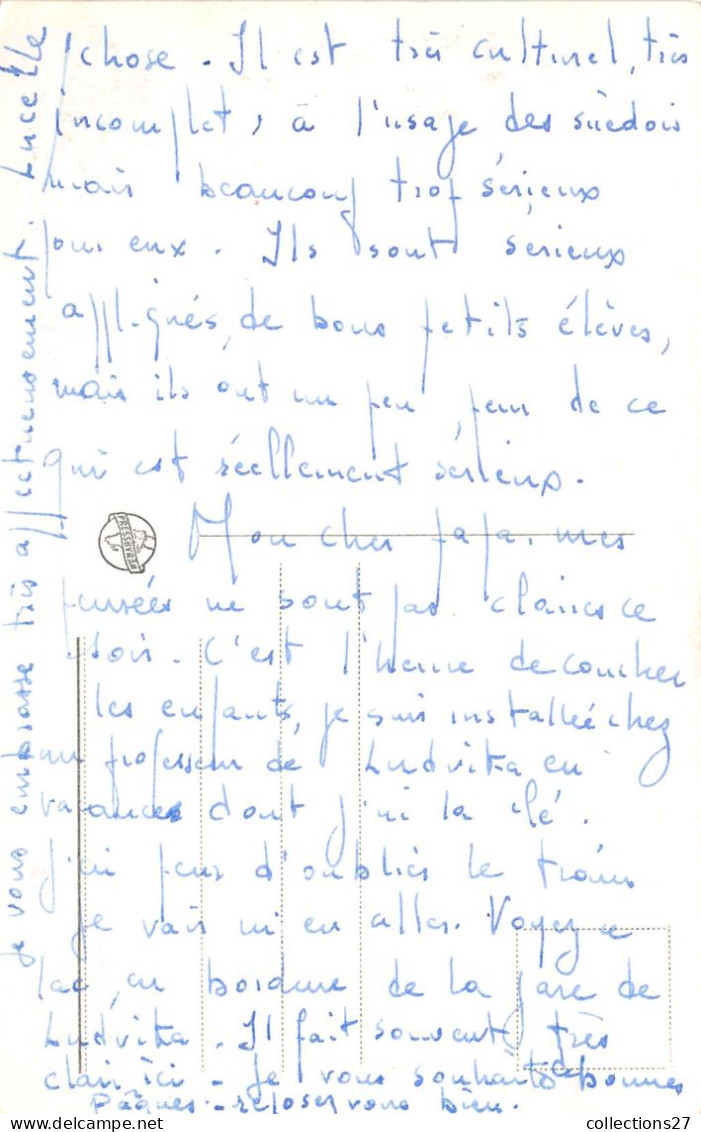 chose. Il est très culturel, très
incomplet, à l'usage des suédois
mais beaucoup trop sérieux
pour eux. Ils sont sérieux
appliqués, de bons petits élèves,
mais ils ont un peu peur de ce
qui est réellement sérieux.
PRESSBYRÅN
Mon cher papa, mes
pensées ne sont pas claires ce
soir. C'est l'heure de coucher
les enfants, je suis installée chez
un professeur de Ludvika en
vacances dont j'ai la clé.
j'ai peur d'oublier le train
je vais m'en aller. Voyez ce
lac, en bordure de la gare de
Ludvika. Il fait souvent très
clair ici - Je vous souhaite de bonnes
Pâques - reposez vous bien.
je vous embrasse très affectueusement. Lucette
collections27